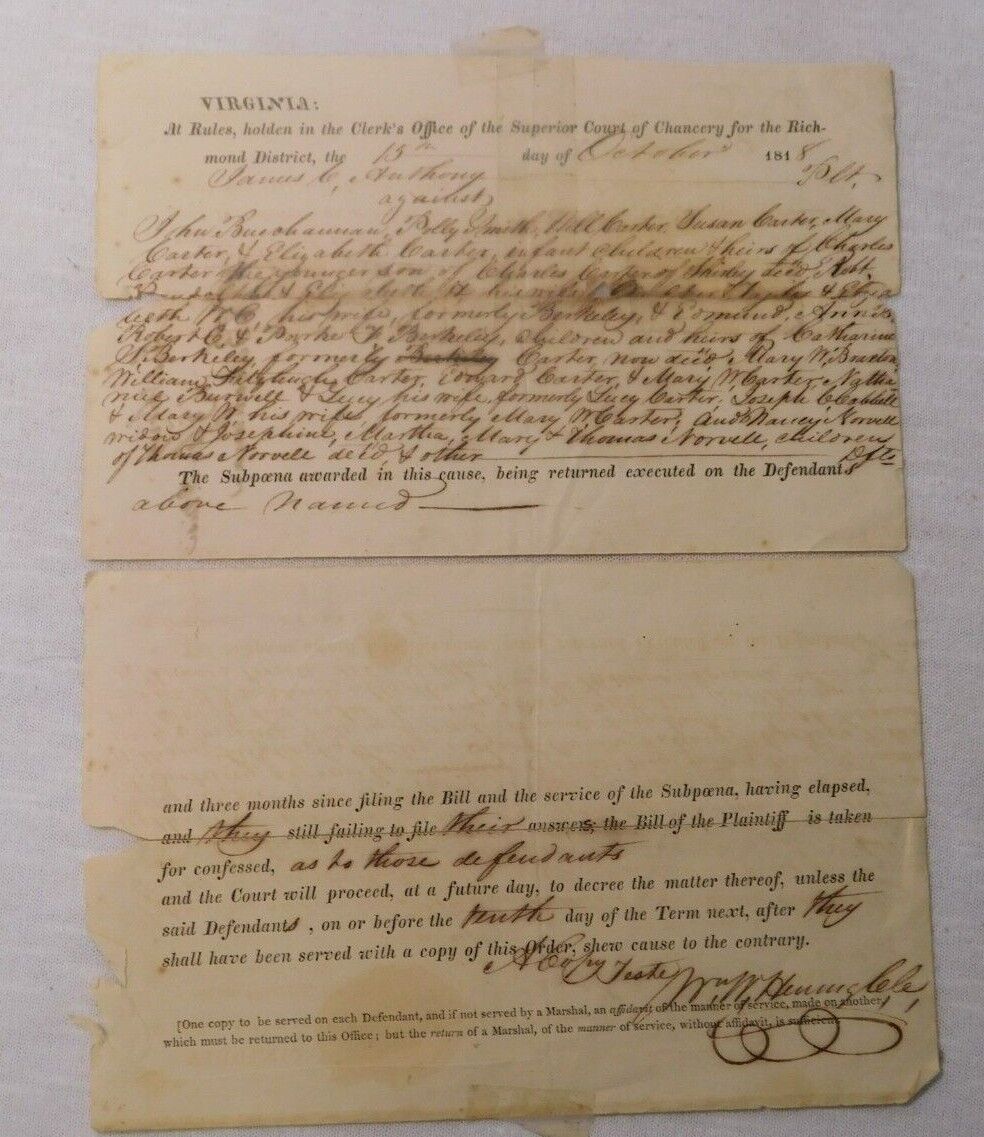 VIRGINIA:
At Rules, holden in the Clerk's Office of the Superior Court of Chancery for the Rich-
mond District, the 15th day of October 1818
James C. Anthony Plt.
against
John Buchannan, Polly Smith, Hill Carter, Susan Carter, Mary
Carter, & Elizabeth Carter, infant children & heirs of Charles
Carter the younger son of Charles Carter of Shirley decd, Robt.
& Elizabeth his wife & Eliza
beth W. C. his wife, formerly Berkeley, & Edmund, Ann
Robert C. & Parke F. Berkeley, children and heirs of Catharine
S. Berkeley formerly Berkeley Carter, now decd, Mary W. Braxton
William Fitzhugh Carter, Edward Carter, & Mary W Carter, Natha
niel Burwell & Lucy his wife, formerly Lucy Carter, Joseph C Cabell
& Mary W. his wife, formerly Mary W Carter; and Nancy Norvell
widow & Josephine, Martha, Mary & Thomas Norvell, children
of Thomas Norvell decd & other Dfts
The Subpœna awarded in this cause, being returned executed on the Defendants
above named
and three months since filing the Bill and the service of the Subpœna, having elapsed,
and they still failing to file their answers, the Bill of the Plaintiff is taken
for confessed, as to those defendants
and the Court will proceed, at a future day, to decree the matter thereof, unless the
said Defendants, on or before the tenth day of the Term next, after they
shall have been served with a copy of this Order, shew cause to the contrary.
A Copy Teste
Wm. W. Hening Cle,
[One copy to be served on each Defendant, and if not served by a Marshal, an affidavit of the manner of service, made on another,
which must be returned to this Office; but the return of a Marshal, of the manner of service, without affidavit, is sufficient.